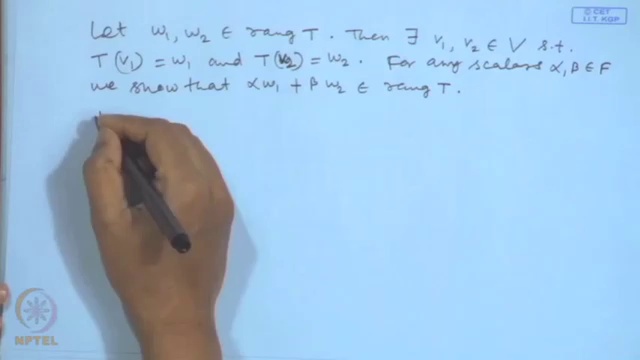 © CET
I.I.T. KGP
Let w₁, w₂ ∈ rang T. Then ∃ v₁, v₂ ∈ V s.t.
T(v₁) = w₁ and T(v₂) = w₂. For any scalars α, β ∈ F
we show that αw₁ + βw₂ ∈ rang T.
NPTEL